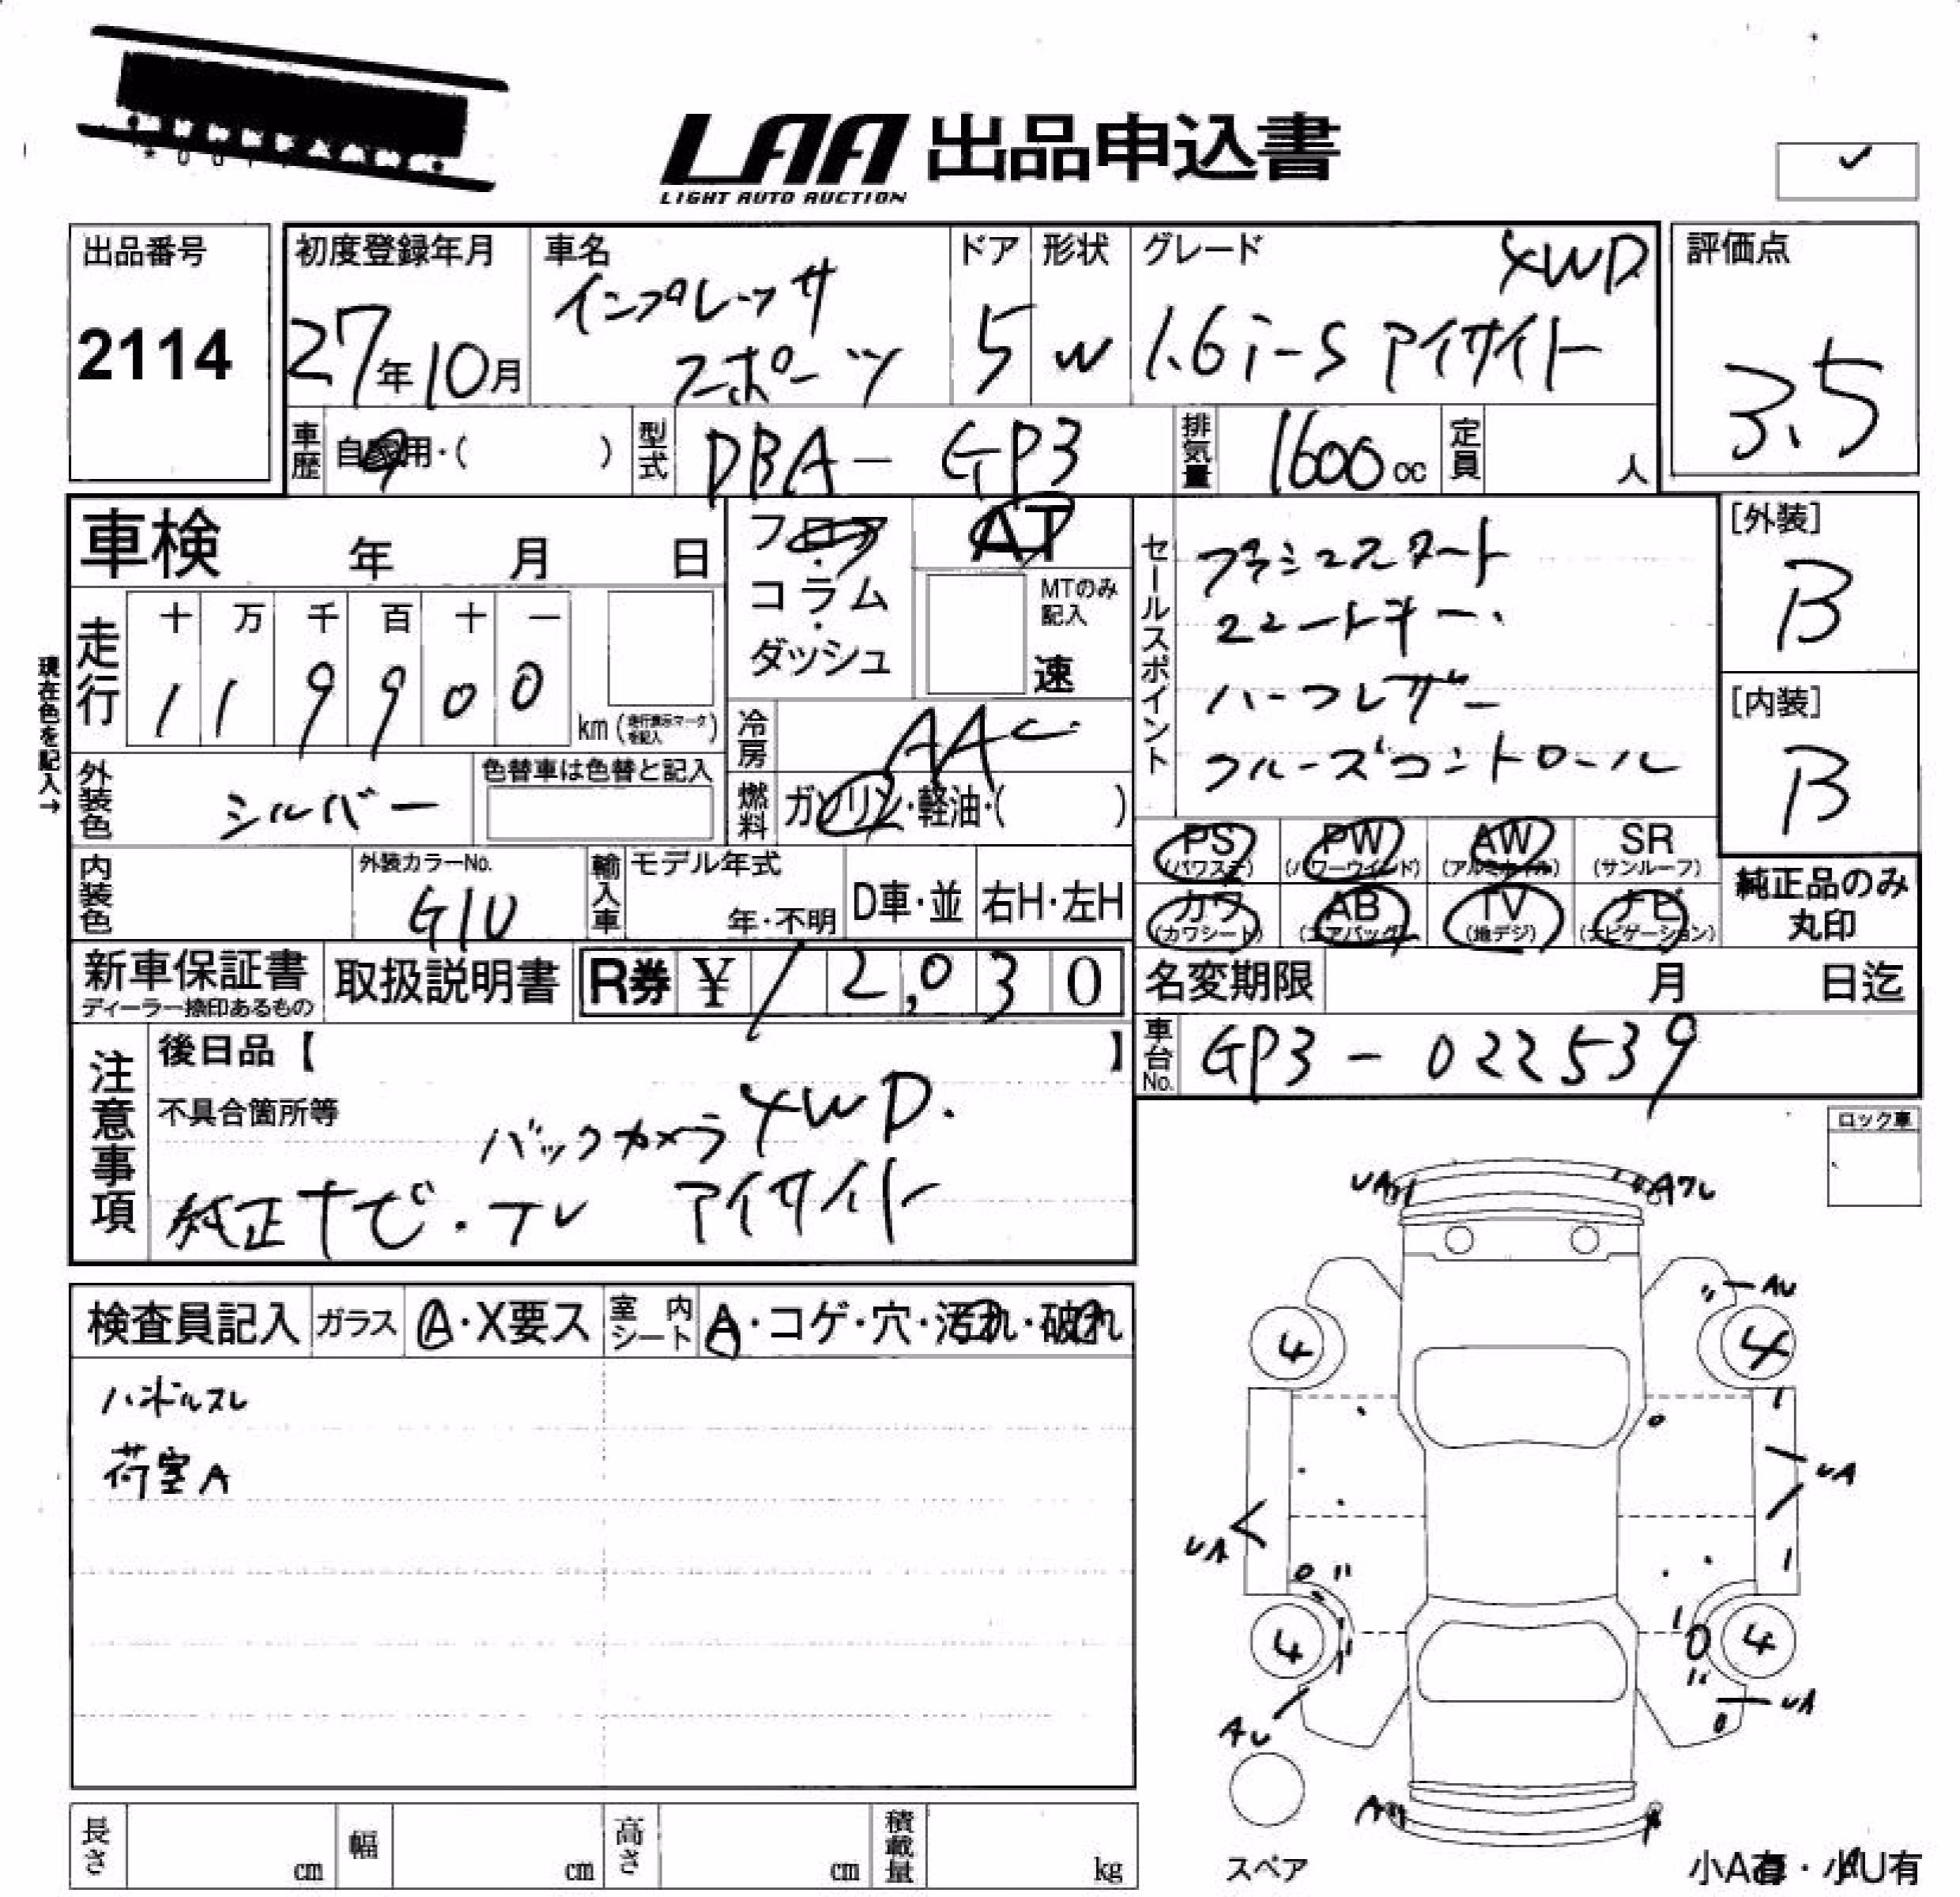 LAA 出品申込書
LIGHT AUTO AUCTION
出品番号
2114
初度登録年月
27年10月
車名
インプレッサ
スポーツ
ドア
5
形状
W
グレード
4WD
1.6i-S アイサイト
評価点
3.5
車歴
自家用・( )
型式
DBA- GP3
排気量
1600cc
定員
人
車検 年 月 日
フロア
・
コラム
・
ダッシュ
AT
MTのみ
記入
速
セールスポイント
プッシュスタート
スマートキー.
ハーフレザー
クルーズコントロール
[外装]
B
[内装]
B
現在色を記入→
走行
十 万 千 百 十 一
1 1 9 9 0 0
km (走行表示マークを記入)
冷房
AAC
外装色
シルバー
色替車は色替と記入
燃料
ガソリン・軽油・( )
PS
(パワステ)
PW
(パワーウインド)
AW
(アルミホイル)
SR
(サンルーフ)
カワ
(カワシート)
AB
(エアバッグ)
TV
(地デジ)
ナビ
(ナビゲーション)
純正品のみ
丸印
内装色
外装カラーNo.
G1U
輸入車
モデル年式
年・不明
D車・並
右H・左H
新車保証書
ディーラー捺印あるもの
取扱説明書
R券 ¥ 12,030
名変期限 月 日迄
車台No.
GP3-022539
注意事項
後日品【 】
不具合箇所等
バックカメラ 4WD.
純正ナビ・テレ アイサイト
ロック車
検査員記入
ガラス
A・X要ス
室内シート
A・コゲ・穴・汚れ・破れ
ハンドルスレ
荷室A
UA
Aワレ
AU
4
4
UA
UA
4
4
UA
AU
A
スペア
小A有・小U有
長さ cm
幅 cm
高さ cm
積載量 kg